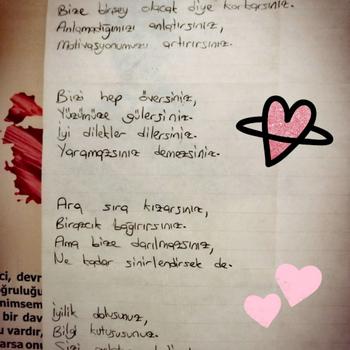 Bize birşey olacak diye korkarsınız.
Anlamadığımızı anlatırsınız,
Motivasyonumuzu artırırsınız.
Bizi hep översiniz,
Yüzümüze gülersiniz.
İyi dilekler dilersiniz.
Yaramazsınız demezsiniz.
Ara sıra kızarsınız,
Birazcık bağırırsınız.
Ama bize darılmazsınız,
Ne kadar sinirlendirsek de.
İyilik dolusunuz,
Bilgi kutususunuz.
Sizi
ci, devr
oğruluğu
nimsem
bir dav
u vardır,
arsa onu